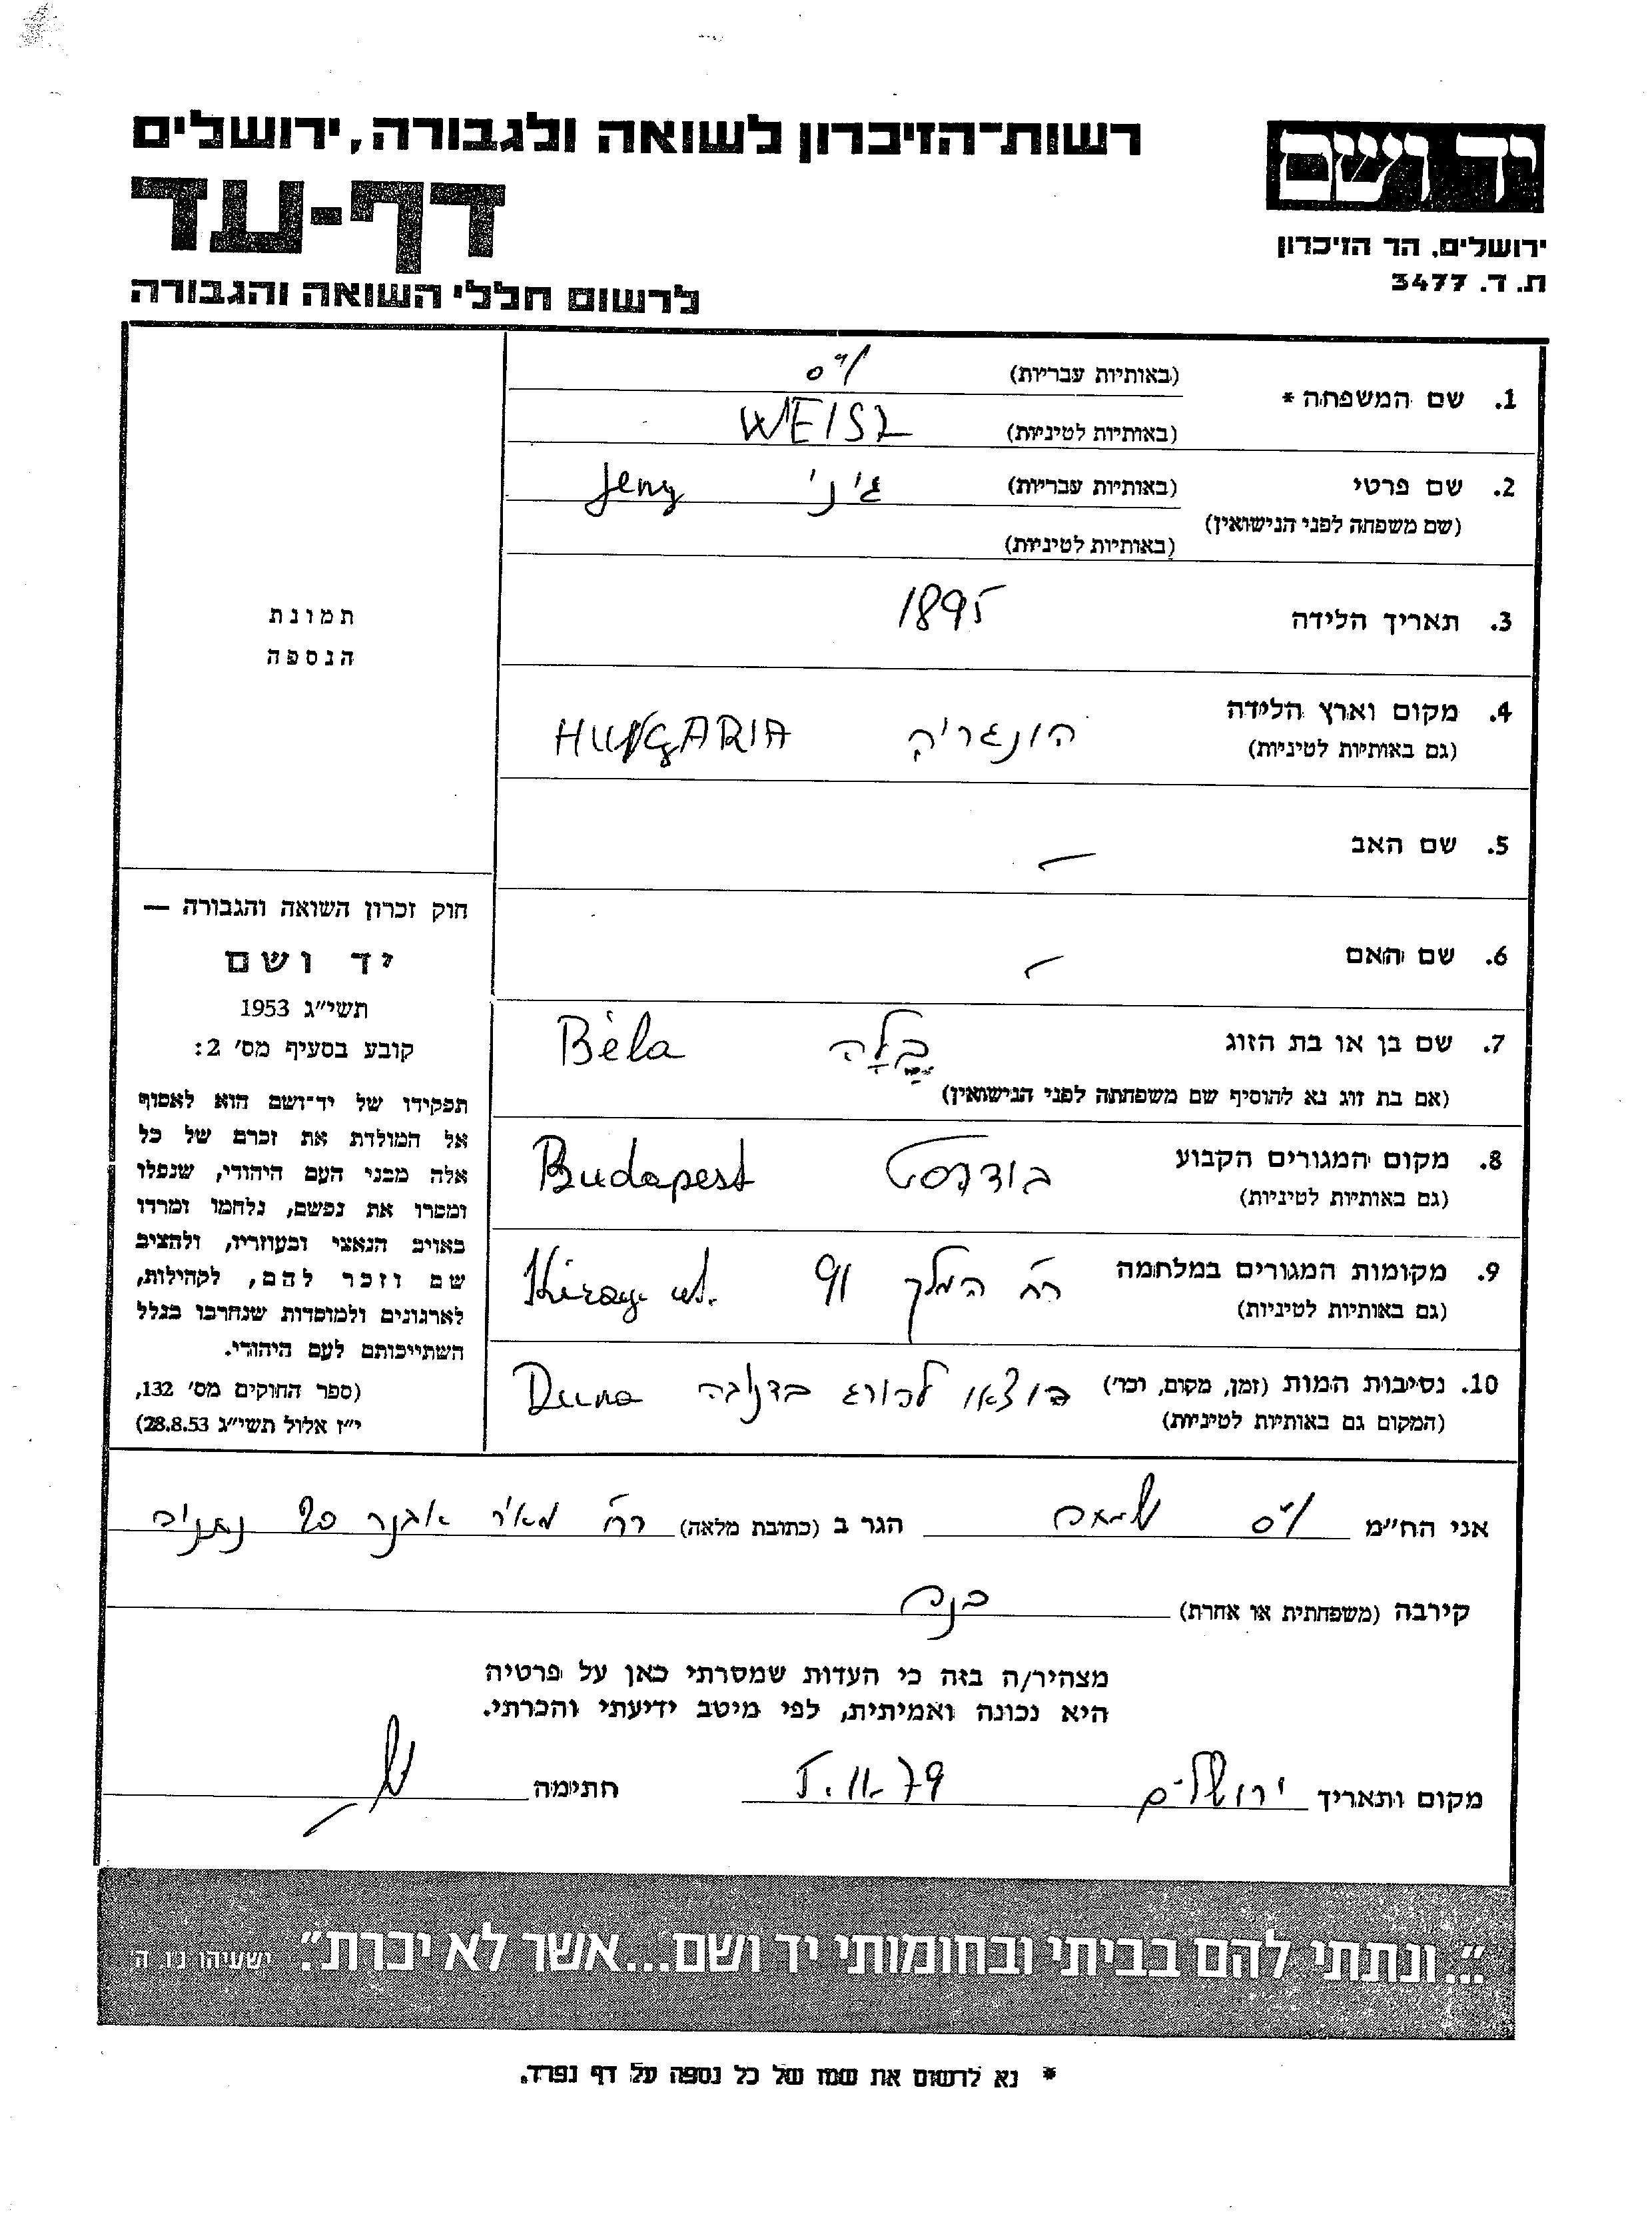 רשות-הזיכרון לשואה ולגבורה, ירושלים
דף-עד
לרשום חללי השואה והגבורה
יד ושם
ירושלים, הר הזיכרון
ת. ד. 3477
1. שם המשפחה *
(באותיות עבריות) ויס
(באותיות לטיניות) WEISZ
2. שם פרטי
(שם משפחה לפני הנישואין)
(באותיות עבריות) ג'ני Jeny
(באותיות לטיניות)
3. תאריך הלידה 1895
4. מקום וארץ הלידה הונגריה HUNGARIA
(גם באותיות לטיניות)
5. שם האב —
6. שם האם —
7. שם בן או בת הזוג בלה Béla
(אם בת זוג נא להוסיף שם משפחתה לפני הנישואין)
8. מקום המגורים הקבוע בודפסט Budapest
(גם באותיות לטיניות)
9. מקומות המגורים במלחמה רח' המלך 91 Király ut.
(גם באותיות לטיניות)
10. נסיבות המות (זמן, מקום, וכו') הוצאו להורג בדנובה Duna
(המקום גם באותיות לטיניות)
תמונת
הנספה
חוק זכרון השואה והגבורה —
יד ושם
תשי״ג 1953
קובע בסעיף מס' 2:
תפקידו של יד-ושם הוא לאסוף
אל המולדת את זכרם של כל
אלה מבני העם היהודי, שנפלו
ומסרו את נפשם, נלחמו ומרדו
באויב הנאצי ובעוזריו, ולהציב
שם וזכר להם, לקהילות,
לארגונים ולמוסדות שנחרבו בגלל
השתייכותם לעם היהודי.
(ספר החוקים מס' 132,
י״ז אלול תשי״ג 28.8.53)
אני הח״מ ויס הגר ב (כתובת מלאה) רח' מאיר אבנר נתניה
קירבה (משפחתית או אחרת)
מצהיר/ה בזה כי העדות שמסרתי כאן על פרטיה
היא נכונה ואמיתית, לפי מיטב ידיעתי והכרתי.
מקום ותאריך ירושלים 5.11.79 חתימה
״...ונתתי להם בביתי ובחומותי יד ושם...אשר לא יכרת״. ישעיהו נו ה
* נא לרשום את שמו של כל נספה על דף נפרד.